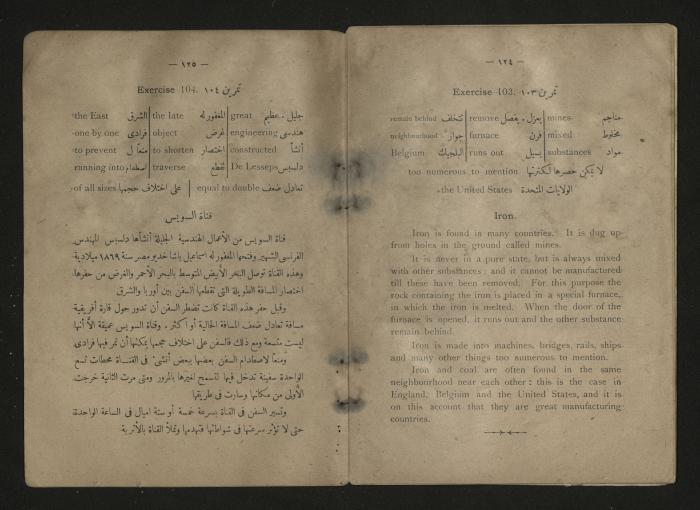 — ١٢٤ —
Exercise 103. تمرين ١٠٣
remain behind تتخلف remove يعزل ـ يفصل mines مناجم
neighbourhood جوار furnace فرن mixed مخلوط
Belgium البلجيك runs out يسيل substances مواد
too numerous to mention لا يمكن حصرها لكثرتها
the United States الولايات المتحدة
Iron.
Iron is found in many countries. It is dug up
from holes in the ground called mines.
It is never in a pure state, but is always mixed
with other substances: and it cannot be manufactured
till these have been removed. For this purpose the
rock containing the iron is placed in a special furnace,
in which the iron is melted. When the door of the
furnace is opened, it runs out and the other substance
remain behind.
Iron is made into machines, bridges, rails, ships
and many other things too numerous to mention.
Iron and coal are often found in the same
neighbourhood near each other: this is the case in
England, Belgium and the United States, and it is
on this account that they are great manufacturing
countries.
— ١٢٥ —
Exercise 104. تمرين ١٠٤
the East الشرق the late المغفور له great جليل ـ عظيم
one by one فرادى object غرض engineering هندسي
to prevent منعاً ل to shorten اختصار constructed أنشأ
running into اصطدام traverse تقطع De Lesseps دلسبس
of all sizes على اختلاف حجمها equal to double تعادل ضعف
قناة السويس
قناة السويس من الأعمال الهندسية الجليلة أنشأها دلسبس المهندس
الفرنسى الشهير وفتحها المغفور له اسماعيل باشا خديو مصر سنة ١٨٦٩ ميلادية
وهذه القناة توصل البحر الأبيض المتوسط بالبحر الأحمر والغرض من حفرها
اختصار المسافة الطويلة التى تقطعها السفن بين أوربا والشرق
وقبل حفر هذه القناة كانت تضطر السفن أن تدور حول قارة أفريقية
مسافة تعادل ضعف المسافة الحالية أو أكثر، وقناة السويس عميقة الا أنها
ليست متسعة ومع ذلك فالسفن على اختلاف حجمها يمكنها أن تمر فيها فرادى
ومنعاً لاصطدام السفن بعضها ببعض أنشىء فى القناة محطات تسع
الواحدة سفينة تدخل فيها لتسمح لغيرها بالمرور ومتى مرت الثانية خرجت
الأولى من مكانها وسارت فى طريقها
وتسير السفن فى القناة بسرعة خمسة أو ستة اميال فى الساعة الواحدة
حتى لا تؤثر سرعتها فى شواطئها فتهدمها وتملأ القناة بالأتربة